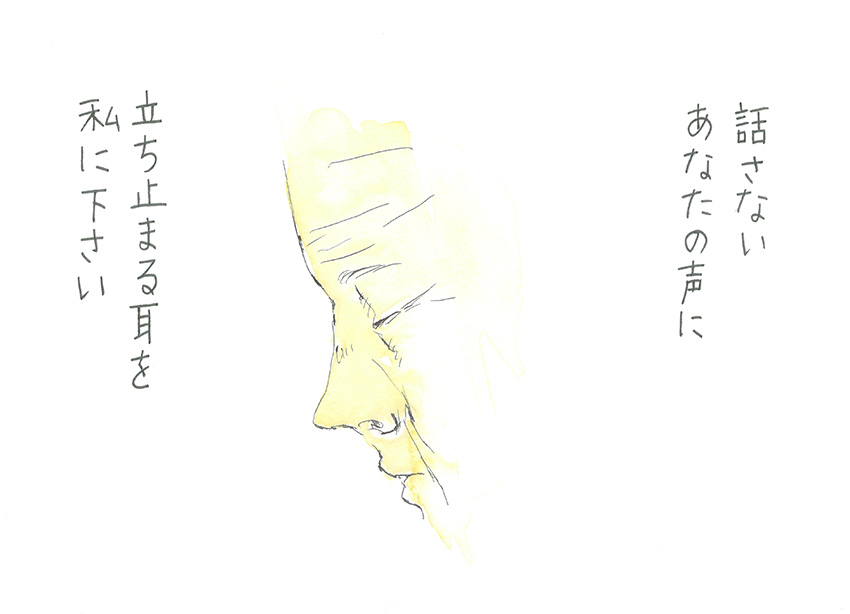 話さない
あなたの声に
立ち止まる耳を
私に下さい